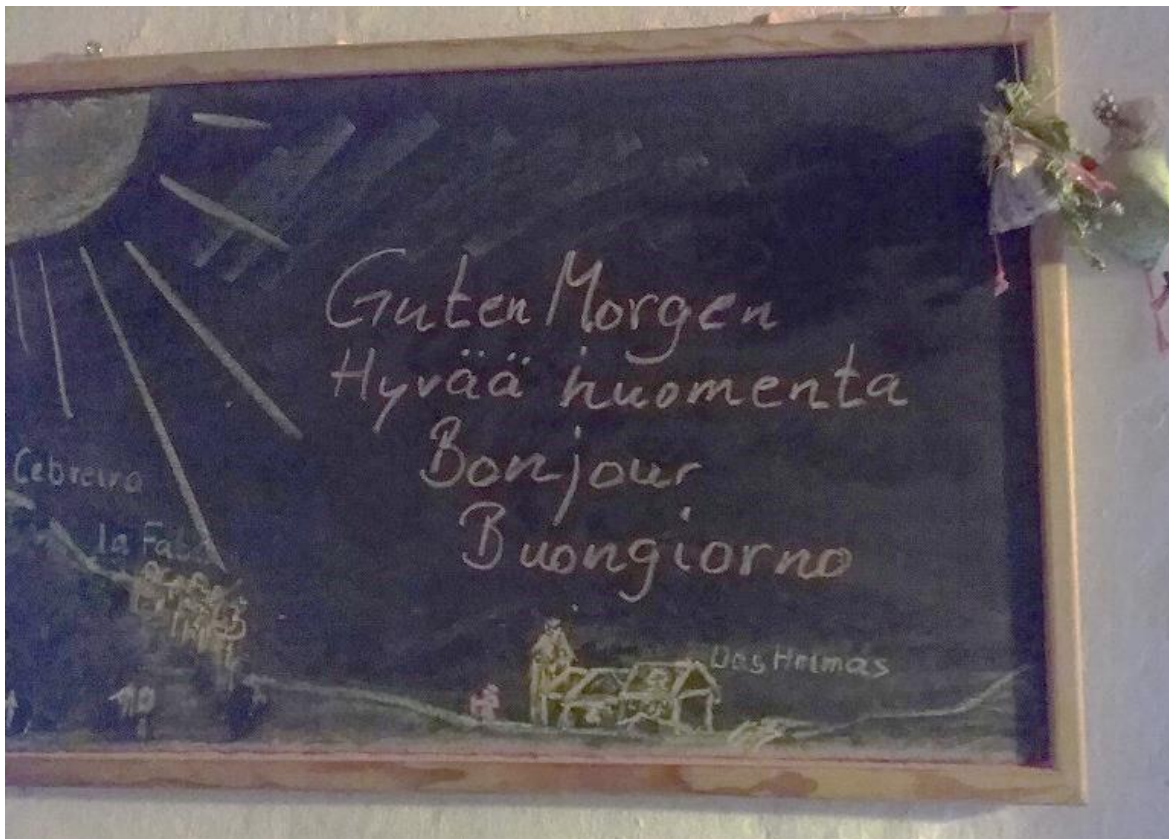 Guten Morgen
Hyvää huomenta
Bonjour
Buongiorno
Cebreiro
la Faba
Das Hermas
10